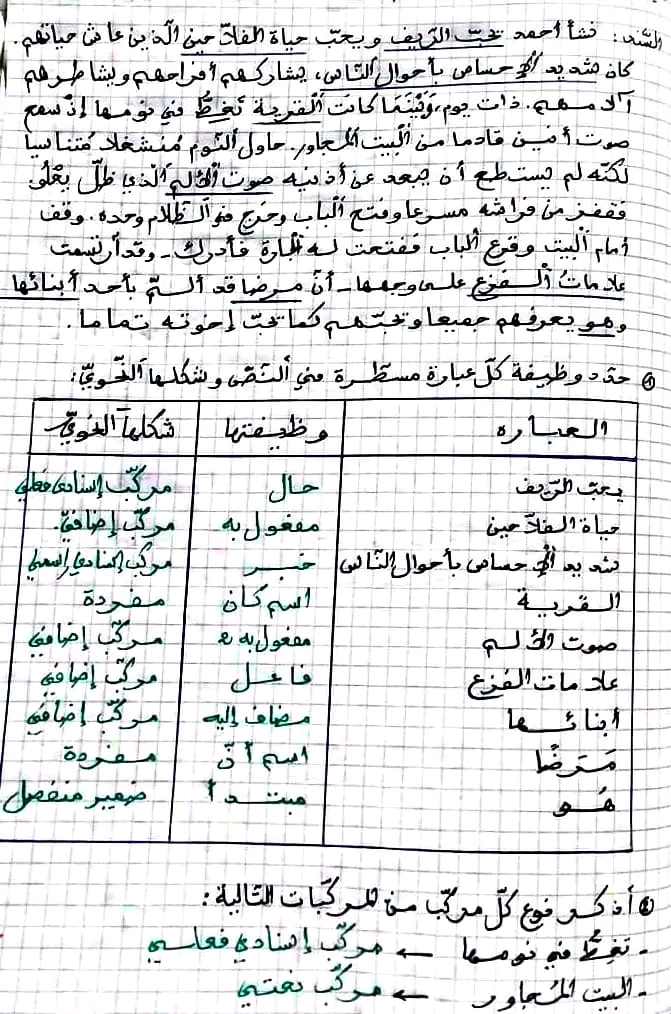 السّند: نشأ أحمد يحبّ الرّيف ويحبّ حياة الفلاّحين الّذين عاش حياتهم.
كان شديد الإحساس بأحوال النّاس، يشاركهم أفراحهم ويشاطرهم
آلامهم. ذات يوم، وبينما كانت القرية تغطّ في نومها إذ سمع
صوت أنين قادما من البيت المجاور. حاول النّوم مُنشغلا مُتناسيا
لكنّه لم يستطع أن يبعد عن أذنيه صوت الألم الّذي ظلّ يعلو
فقفز من فراشه مسرعا وفتح الباب وخرج في الظّلام وحده. وقف
أمام البيت وقرع الباب ففتحت له الجارة فأدرك - وقد ارتسمت
علامات الفزع على وجهها - أنّ مرضا قد ألمّ بأحد أبنائها
وهو يعرفهم جميعا ويحبّهم كما يحبّ إخوته تماما.
① حدّد وظيفة كلّ عبارة مسطّرة في النّصّ وشكلها النّحويّ:
العبارة وظيفتها شكلها النّحويّ
يحبّ الرّيف حال مركّب إسنادي فعلي
حياة الفلاّحين مفعول به مركّب إضافيّ.
شديد الإحساس بأحوال النّاس خبر مركّب إسنادي إسمي
القرية اسم كان مفردة
صوت الألم مفعول به مركّب إضافي
علامات الفزع فاعل مركّب إضافي
أبنائها مضاف إليه مركّب إضافي
مَرَضًا اسم أنّ مفردة
هُو مبتدأ ضمير منفصل
② أذكر نوع كلّ مركّب من المركّبات التّالية:
- تغطّ في نومها ← مركّب إسنادي فعلي
- البيت المُجاور ← مركّب نعتي